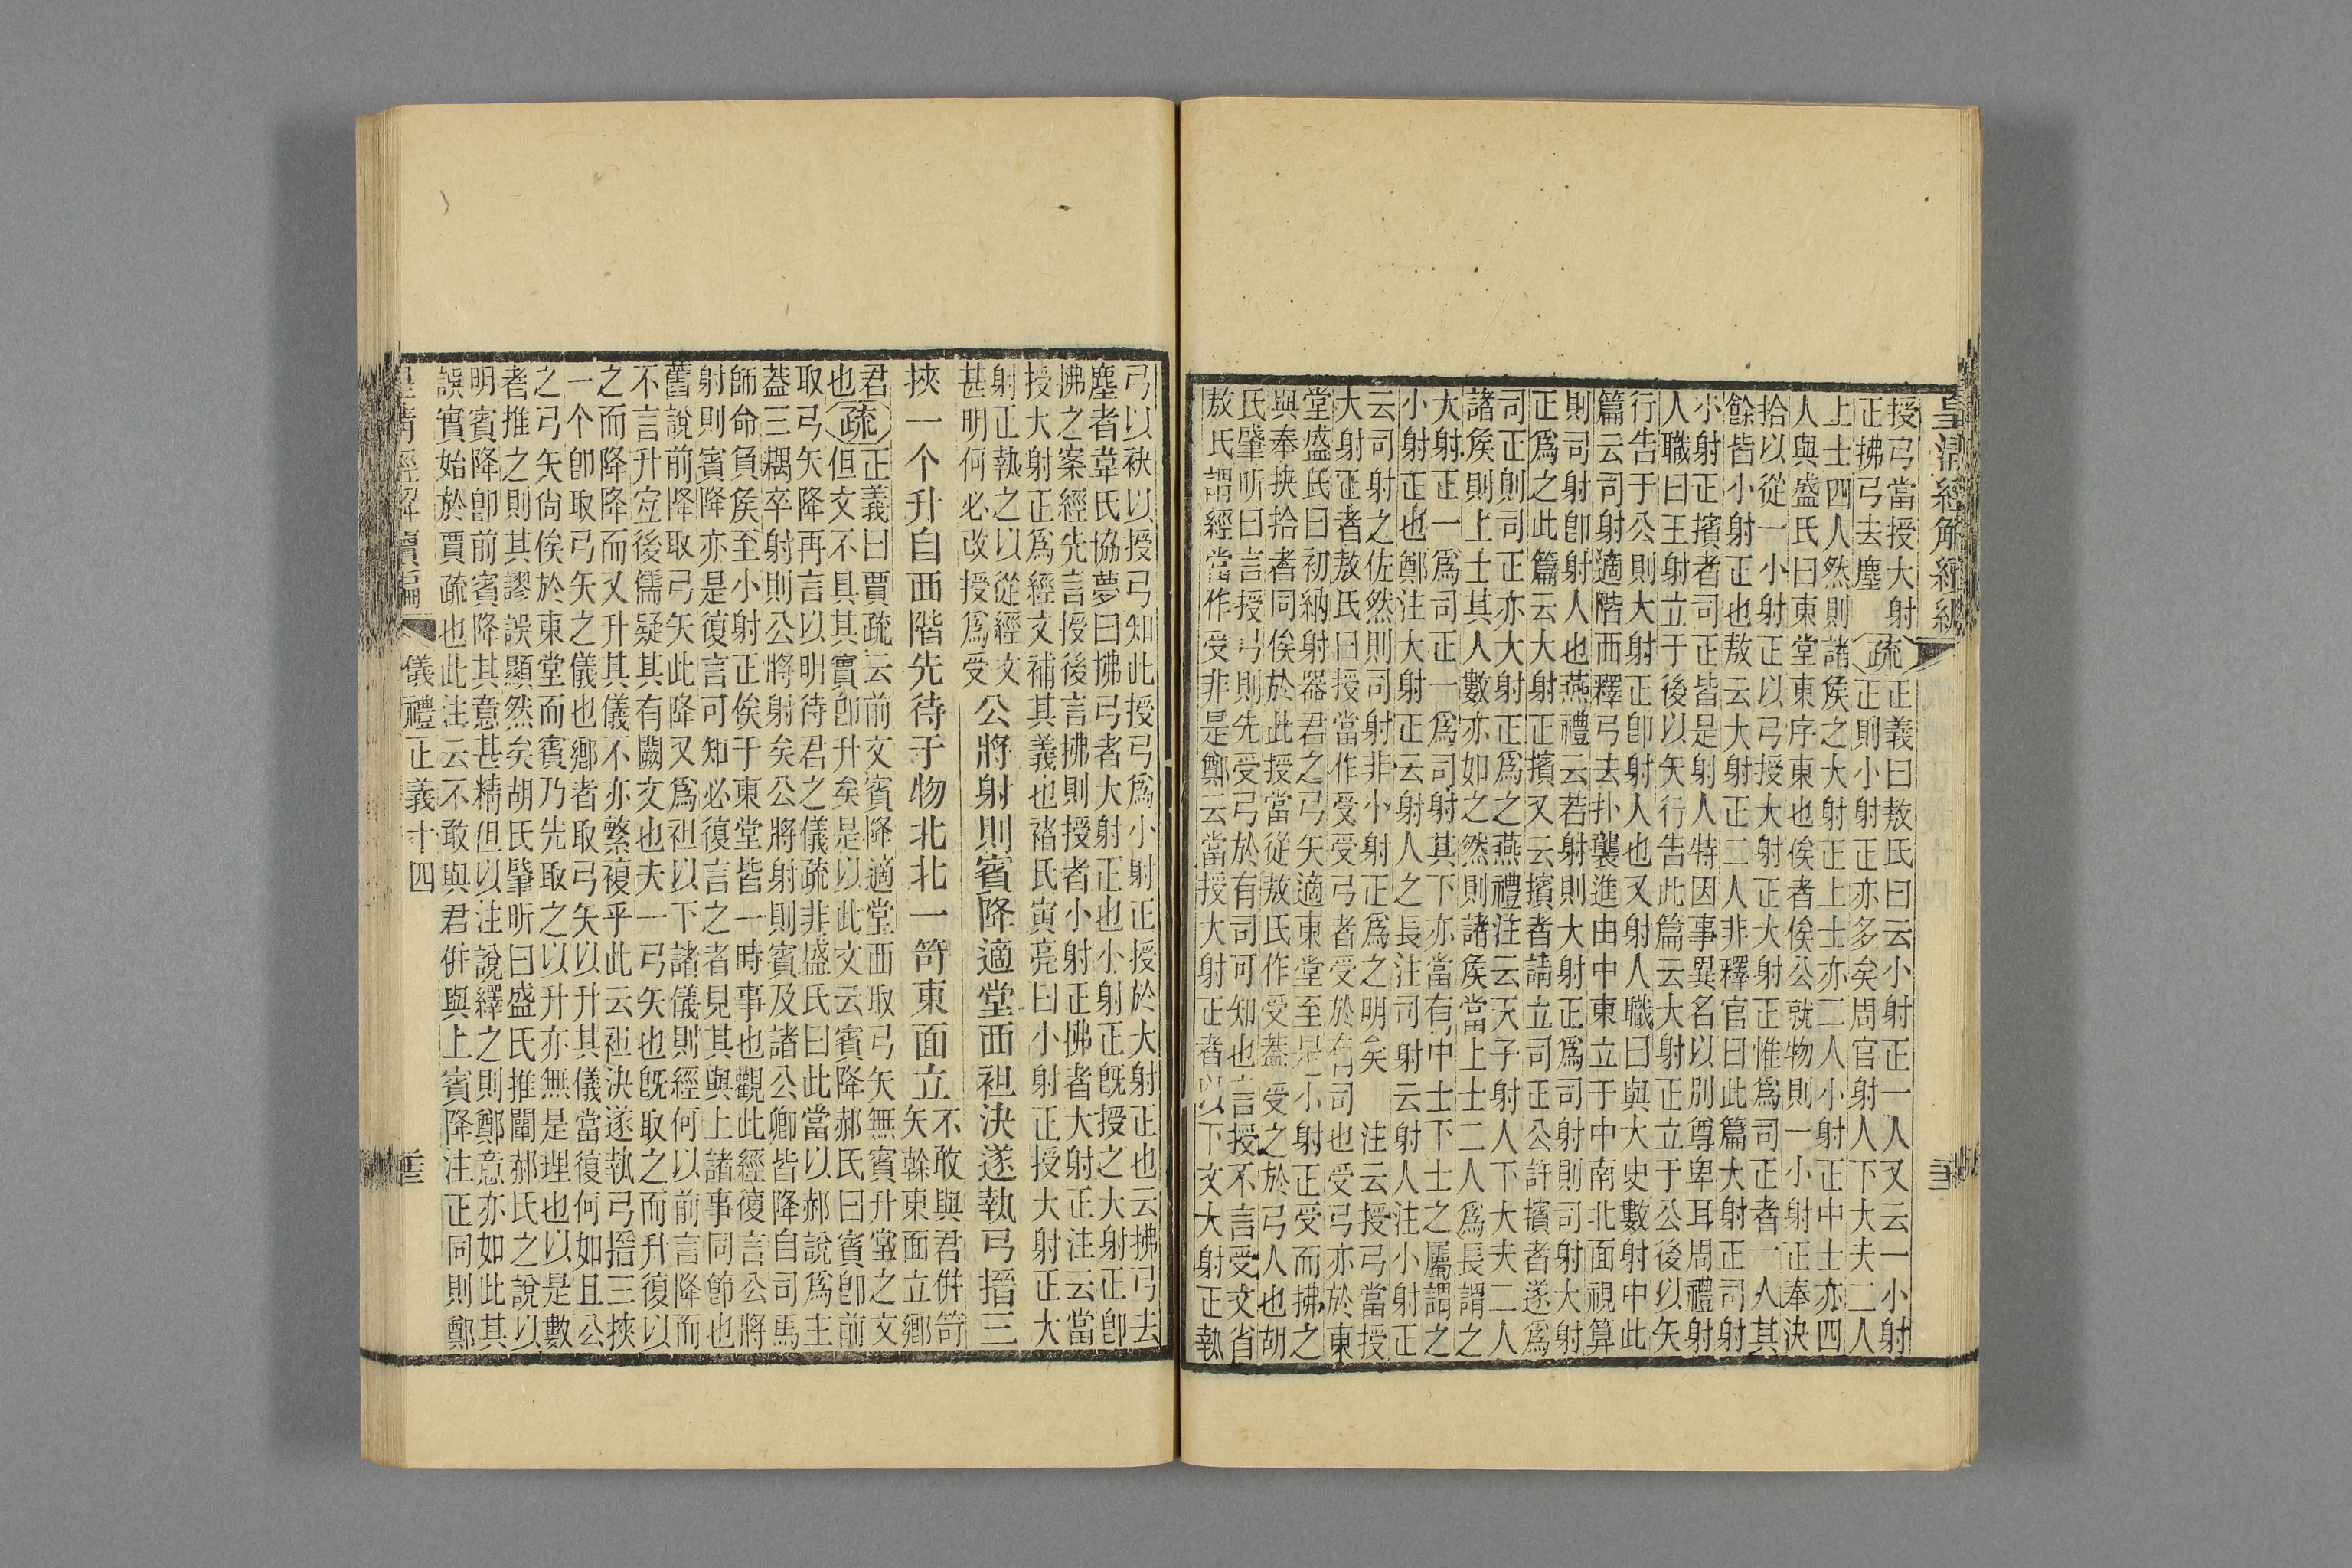 皇淸經解續編
授弓當授大射
正拂弓去塵
疏
正義曰敖氏曰云小射正一人又云一小射
正則小射正亦多矣周官射人下大夫二人
上士四人然則諸侯之大射正上士亦二人小射正中士亦四
人與盛氏曰東堂東序東也俟者俟公就物則一小射正奉決
拾以從一小射正以弓授大射正大射正惟爲司正者一人其
餘皆小射正也敖云大射正二人非釋官曰此篇大射正司射
小射正擯者司正皆是射人特因事異名以別尊卑耳周禮射
人職曰王射立于後以矢行告此篇云大射正立于公後以矢
行告于公則大射正卽射人也又射人職曰與大史數射中此
篇云司射適階西釋弓去扑襲進由中東立于中南北面視算
則司射卽射人也燕禮云若射則大射正爲司射則司射大射
正爲之此篇云大射正擯又云擯者請立司正公許擯者遂爲
司正則司正亦大射正爲之燕禮注云天子射人下大夫二人
諸侯則上士其人數亦如之然則諸侯當上士二人爲長謂之
大射正一爲司正一爲司射其下亦當有中士下士之屬謂之
小射正也鄭注大射正云射人之長注司射云射人注小射正
云司射之佐然則司射非小射正爲之明矣　注云授弓當授
大射正者敖氏曰授當作受受弓者受於有司也受弓亦於東
堂盛氏曰初納射器君之弓矢適東堂至是小射正受而拂之
與奉挾拾者同俟於此授當從敖氏作受蓋受之於弓人也胡
氏肇昕曰言授弓則先受弓於有司可知也言授不言受文省
敖氏謂經當作受非是鄭云當授大射正者以下文大射正執
弓以袂以授弓知此授弓爲小射正授於大射正也云拂弓去
塵者韋氏協夢曰拂弓者大射正也小射正旣授之大射正卽
拂之案經先言授後言拂則授者小射正拂者大射正注云當
授大射正爲經文補其義也褚氏寅亮曰小射正授大射正大
射正執之以從經文
甚明何必改授爲受
公將射則賓降適堂西袒決遂執弓搢三
挾一个升自西階先待于物北北一笴東面立
不敢與君併笴
矢幹東面立鄉
君
也
疏
正義曰賈疏云前文賓降適堂西取弓矢無賓升堂之文
但文不具其實卽升矣是以此文云賓降郝氏曰賓卽前
取弓矢降再言以明待君之儀疏非盛氏曰此當以郝說爲主
蓋三耦卒射則公將射矣公將射則賓及諸公卿皆降自司馬
師命負侯至小射正俟于東堂皆一時事也觀此經復言公將
射則賓降亦是復言可知必復言之者見其與上諸事同節也
舊說前降取弓矢此降又爲袒以下諸儀則經何以前言降而
不言升宐後儒疑其有闕文也夫一弓矢也旣取之而升復以
之而降降而又升其儀不亦繁複乎此云袒決遂執弓搢三挾
一个卽取弓矢之儀也鄉者取弓矢以升其儀當復何如且公
之弓矢尙俟於東堂而賓乃先取之以升亦無是理也以是數
者推之則其謬誤顯然矣胡氏肇昕曰盛氏推闡郝氏之說以
明賓降卽前賓降其意甚精但以注說繹之則鄭意亦如此其
誤實始於賈疏也此注云不敢與君併與上賓降注正同則鄭
皇淸經解續編　儀禮正義十四